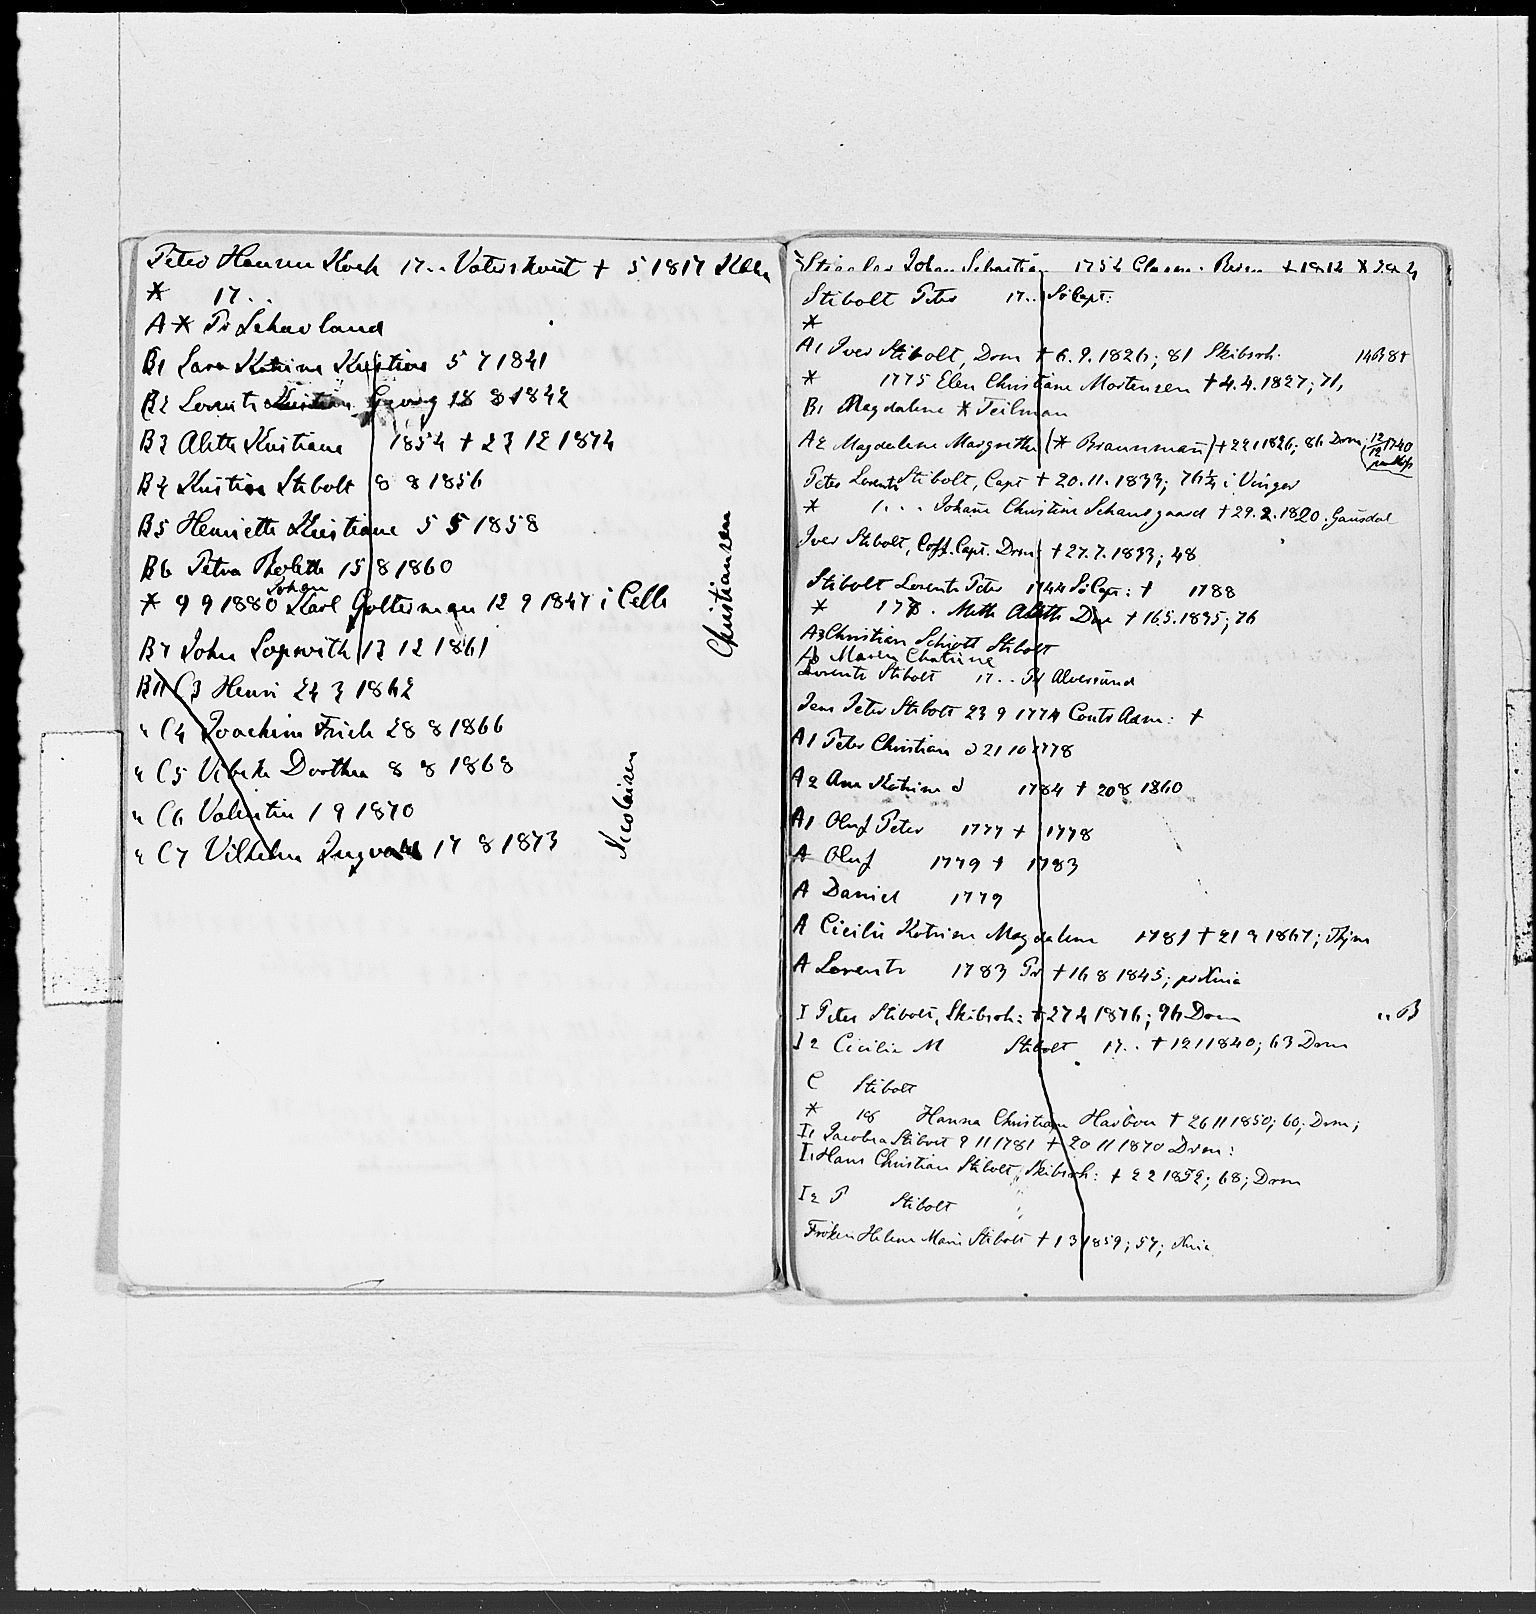 Peter Hansen Koch 17.. Vaterskvist + 5 1817 Kbhn
* 17..
A * Pr Schavland
B1 Sara Katrine Kristine 5 7 1841
B2 Lorents Kristian Georg 18 8 1842
B3 Alethe Kristiane 1854 + 23 12 1874
B4 Kristian Stibolt 8 8 1856
B5 Henriette Kristiane 5 5 1858
B6 Petra Tholette 15 8 1860
* 9 9 1880 Johan Karl Golterman 12 9 1847 i Celle
B7 John Sopwith 13 12 1861
B11 C3 Henri 24 3 1862
" C4 Joachim Frich 28 8 1866
" C5 Vibeke Dorthea 8 8 1868
" C6 Valentin 1 9 1870
" C7 Vilhelm Ingvald 17 8 1873
Christiansen
Nicolaisen
Johan Sebastian 1754 + 1812
Stibolt Peter 17.. SöCapt:
*
A1 Iver Stibolt, Drm + 6.9.1826; 81 Skibsrh.
* 1775 Elen Christiane Mortensen + 4.4.1827; 71,
B1 Magdalene * Teilman
A2 Magdalene Margrethe (* Braunman) + 22 1 1826; 86 Drm; 12/12 1740
Peter Lorents Stibolt, Capt + 20.11.1833; 76 1/4 i Vinger
* 1... Johane Christine Schansgaard + 29.2.1820. Gausdal
Iver Stibolt, Coff.Capt. Drm: + 27.7.1833; 48
Stibolt Lorents Peter 1744 SöCapt: + 1788
* 177. Mette Alethe Due + 16.5.1835; 76
A3 Christian Schiött Stibolt
Maren Chatrine
Lorents Stibolt 17.. Pr Alversund
Jens Peter Stibolt 23 9 1774 ContrAdm: +
A1 Peter Christian d 21 10 1778
A2 Ane Katrine d 1784 + 20 8 1860
A1 Oluf Peter 1777 + 1778
A Oluf 1779 + 1783
A Daniel 1779
A Cicilie Katrine Magdalene 1781 + 21 9 1867; Thjm
A Lorents 1783 Pr + 16 8 1845; pr Xnia
I Peter Stibolt, Skibsrh: + 27 4 1876; 96 Drm " B
I2 Cicilie M Stibolt 17.. + 12 1 1840; 63 Drm
C Stibolt
* 18 Hanna Christiane Harboe + 26 11 1850; 60; Drm;
I1 Jacobea Stibolt 9 11 1781 + 20 11 1870 Drm:
I1 Hans Christian Stibolt, Skibsrh: + 2 2 1852; 68; Drm
I2 P Stibolt
Fröken Helene Marie Stibolt + 1 3 1859; 57; Xnia